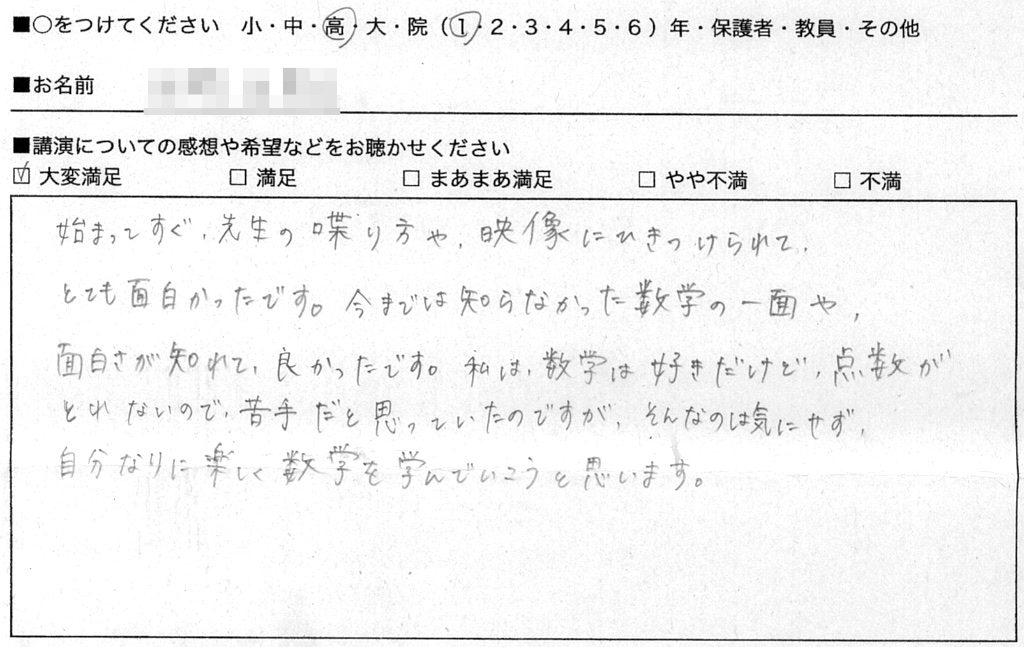 ■○をつけてください 小・中・高・大・院（1・2・3・4・5・6）年・保護者・教員・その他
■お名前
■講演についての感想や希望などをお聴かせください
☑ 大変満足 □ 満足 □ まあまあ満足 □ やや不満 □ 不満
始まってすぐ、先生の喋り方や、映像にひきつけられて、
とても面白かったです。今までは知らなかった数学の一面や、
面白さが知れて、良かったです。私は、数学は好きだけど、点数が
とれないので、苦手だと思っていたのですが、そんなのは気にせず、
自分なりに楽しく数学を学んでいこうと思います。